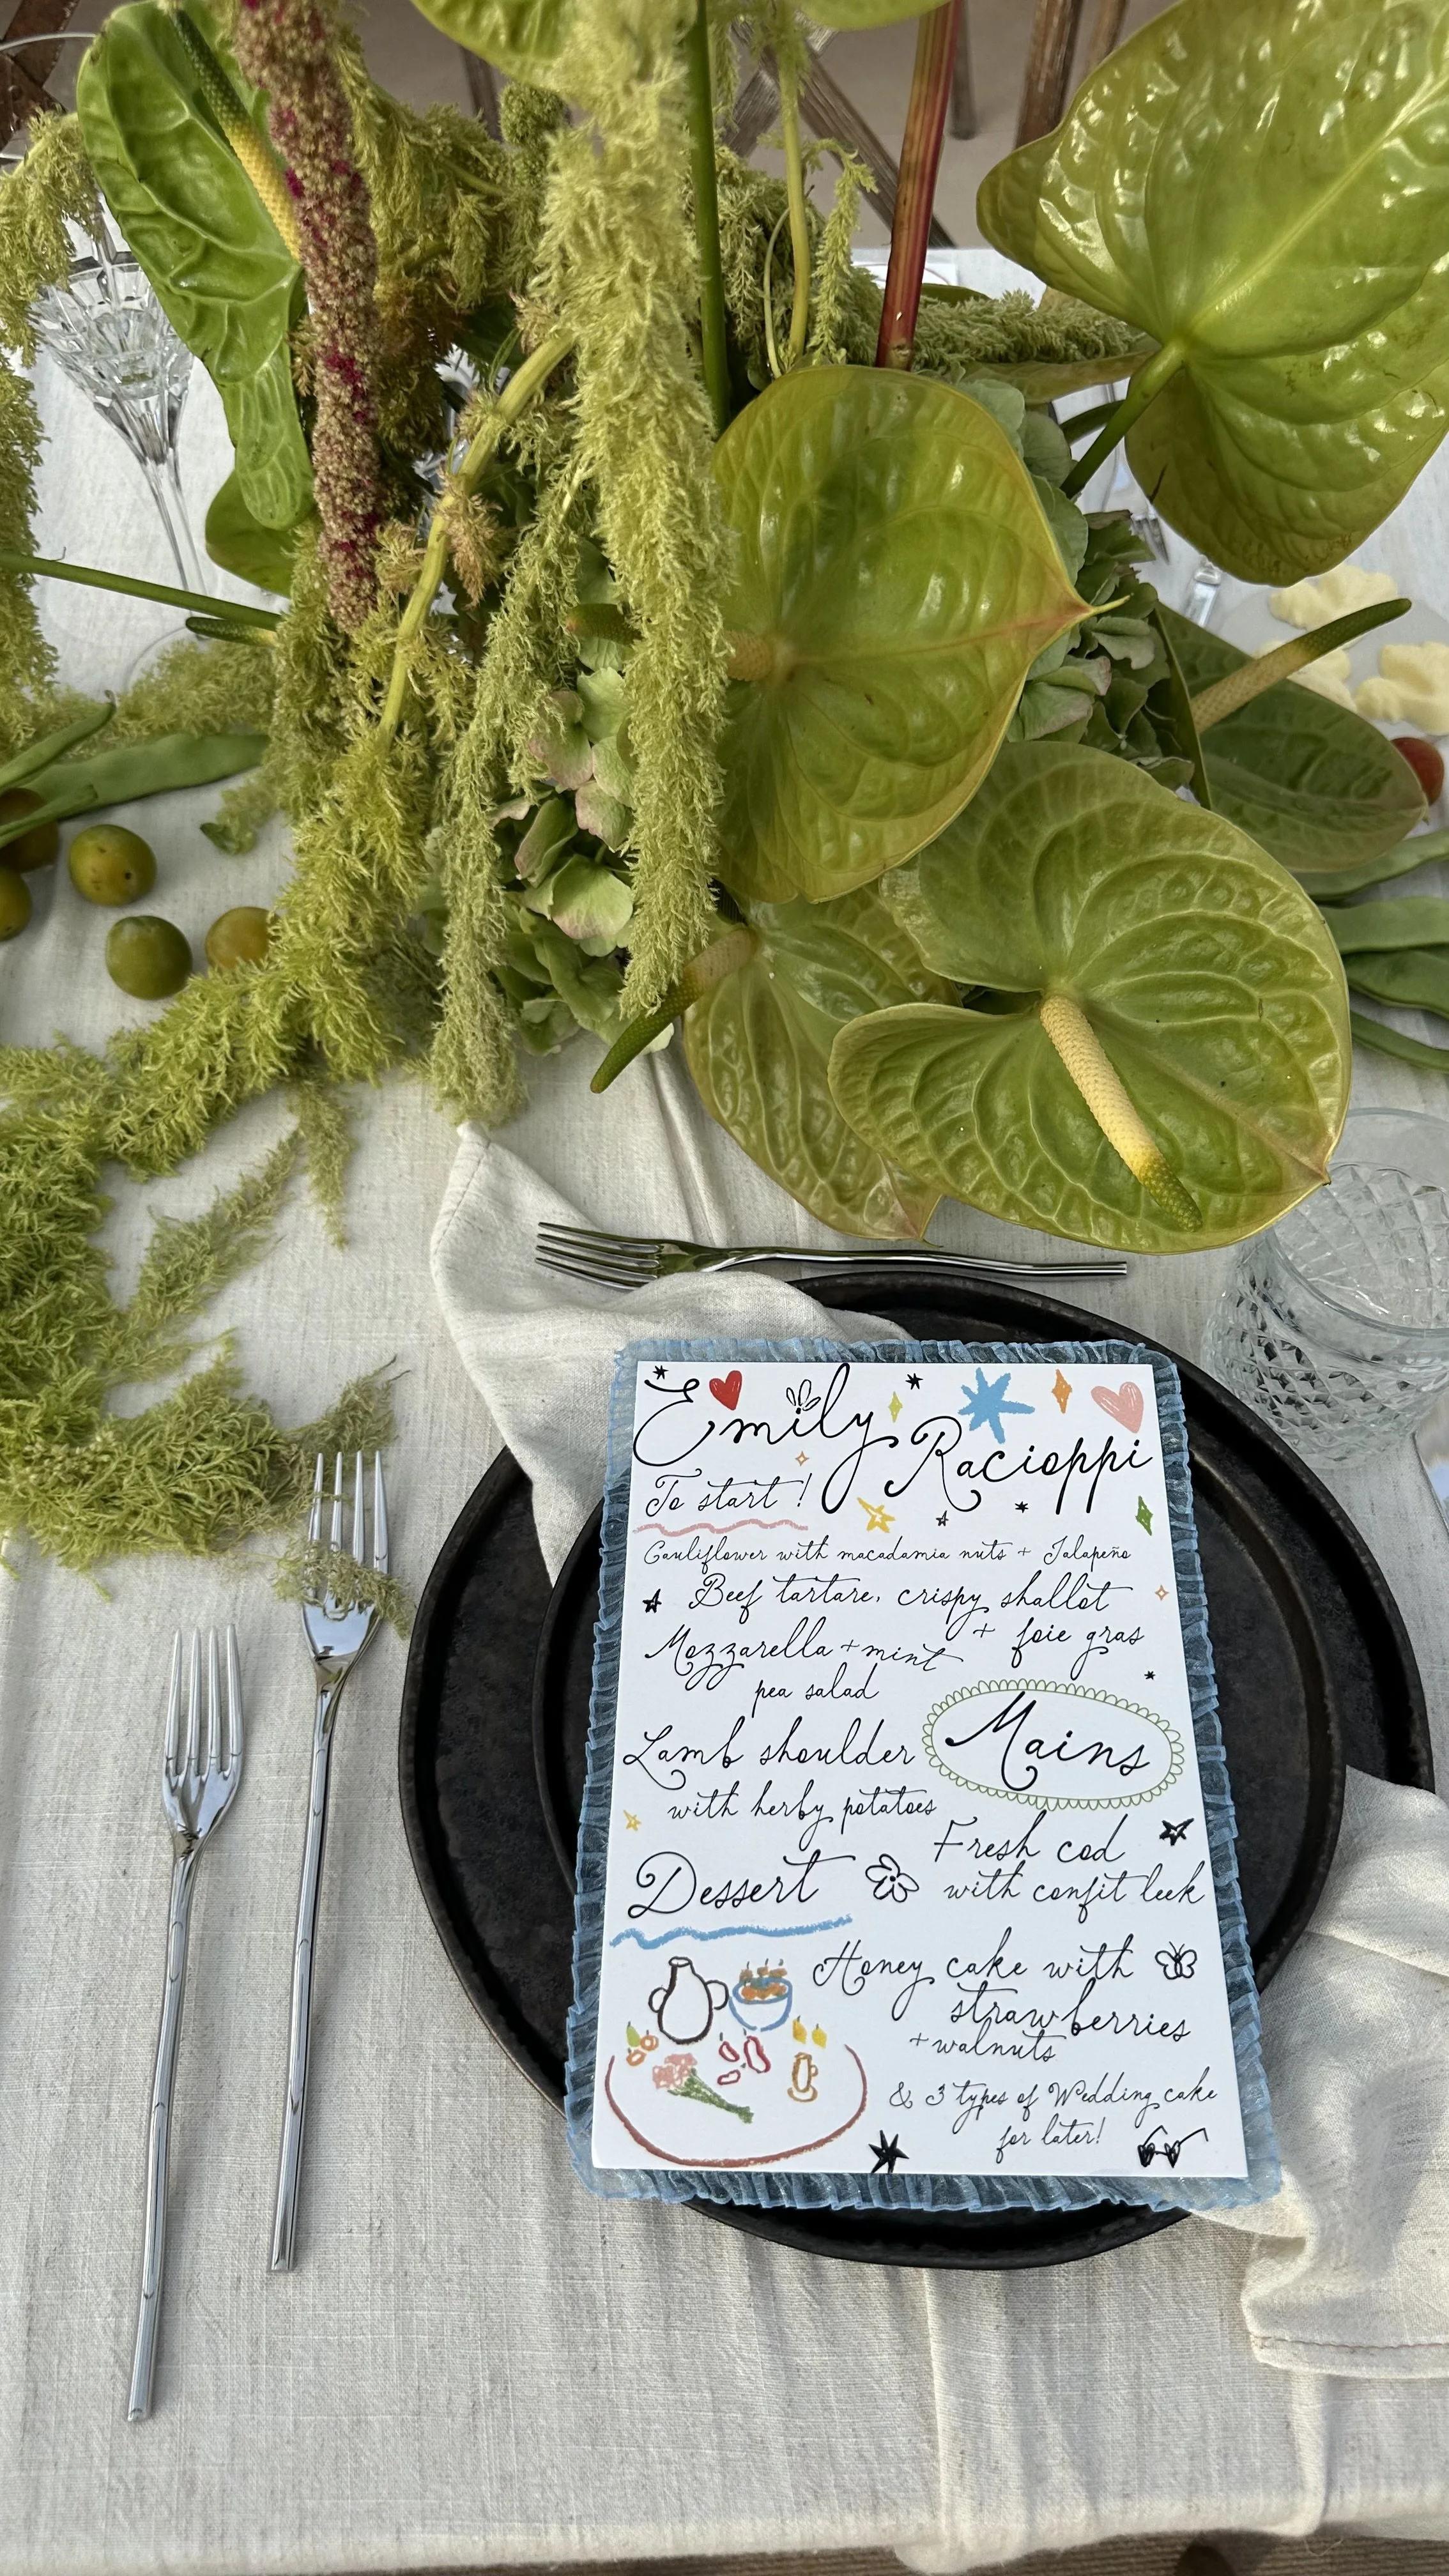 Emily Racioppi
To start!
Cauliflower with macadamia nuts + Jalapeño
Beef tartare, crispy shallot
+ foie gras
Mozzarella + mint
pea salad
Mains
Lamb shoulder
with herby potatoes
Fresh cod
with confit leek
Dessert
Honey cake with
strawberries
+ walnuts
& 3 types of Wedding cake
for later!